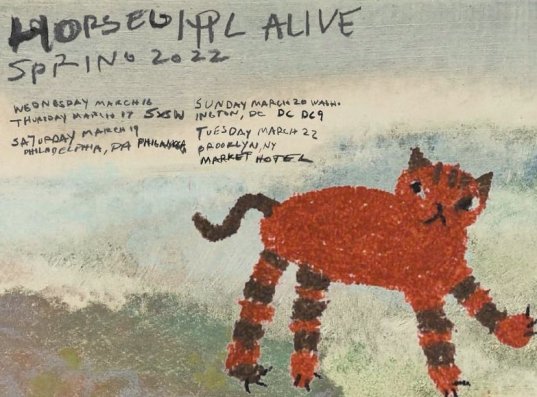 HORSEGIRL ALIVE
SPRING 2022
WEDNESDAY MARCH 16
THURSDAY MARCH 17 SXSW
SATURDAY MARCH 19
PHILADELPHIA, PA
SUNDAY MARCH 20 WASH-
INGTON, DC DC9
TUESDAY MARCH 22
BROOKLYN, NY
MARKET HOTEL